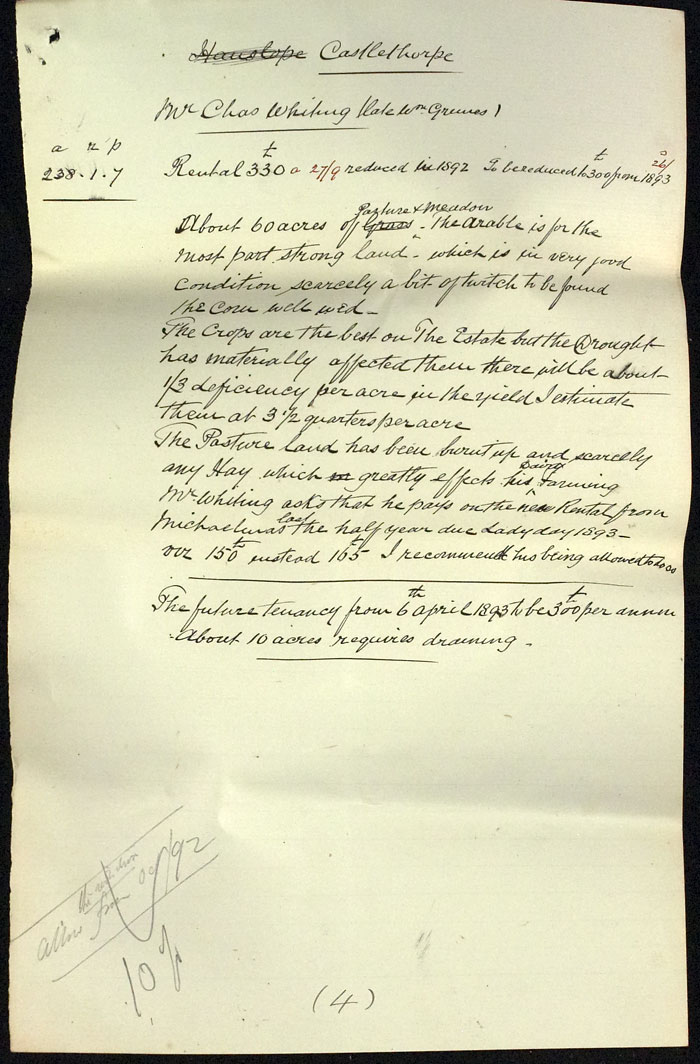 Hanslope Castlethorpe
Mr Chas Whiting (late Wm Greaves)
a r p
238.1.7
Rental 330 a 27/9 reduced in 1892 To be reduced to 300 from 1893
26/
Pasture & Meadow
About 60 acres of Grass - The arable is for the
most part strong land - which is in very good
condition, scarcely a bit of twitch to be found
the corn well wed -
The Crops are the best on The Estate but the Drought
has materially affected them there will be about
1/3 deficiency per acre in the yield I estimate
them at 3 1/2 quarters per acre
The Pasture land has been burnt up and scarcely
any Hay which greatly effects his Dairy Farming
Mr Whiting asks that he pays on the new Rental from
Michaelmas last the half year due Lady day 1893 -
150 instead 165 I recommend his being allowed to do so
The future tenancy from 6th April 1893 to be 300 per annum
- About 10 acres requires draining -
the reduction
allow from Oct/92
10 %
(4)